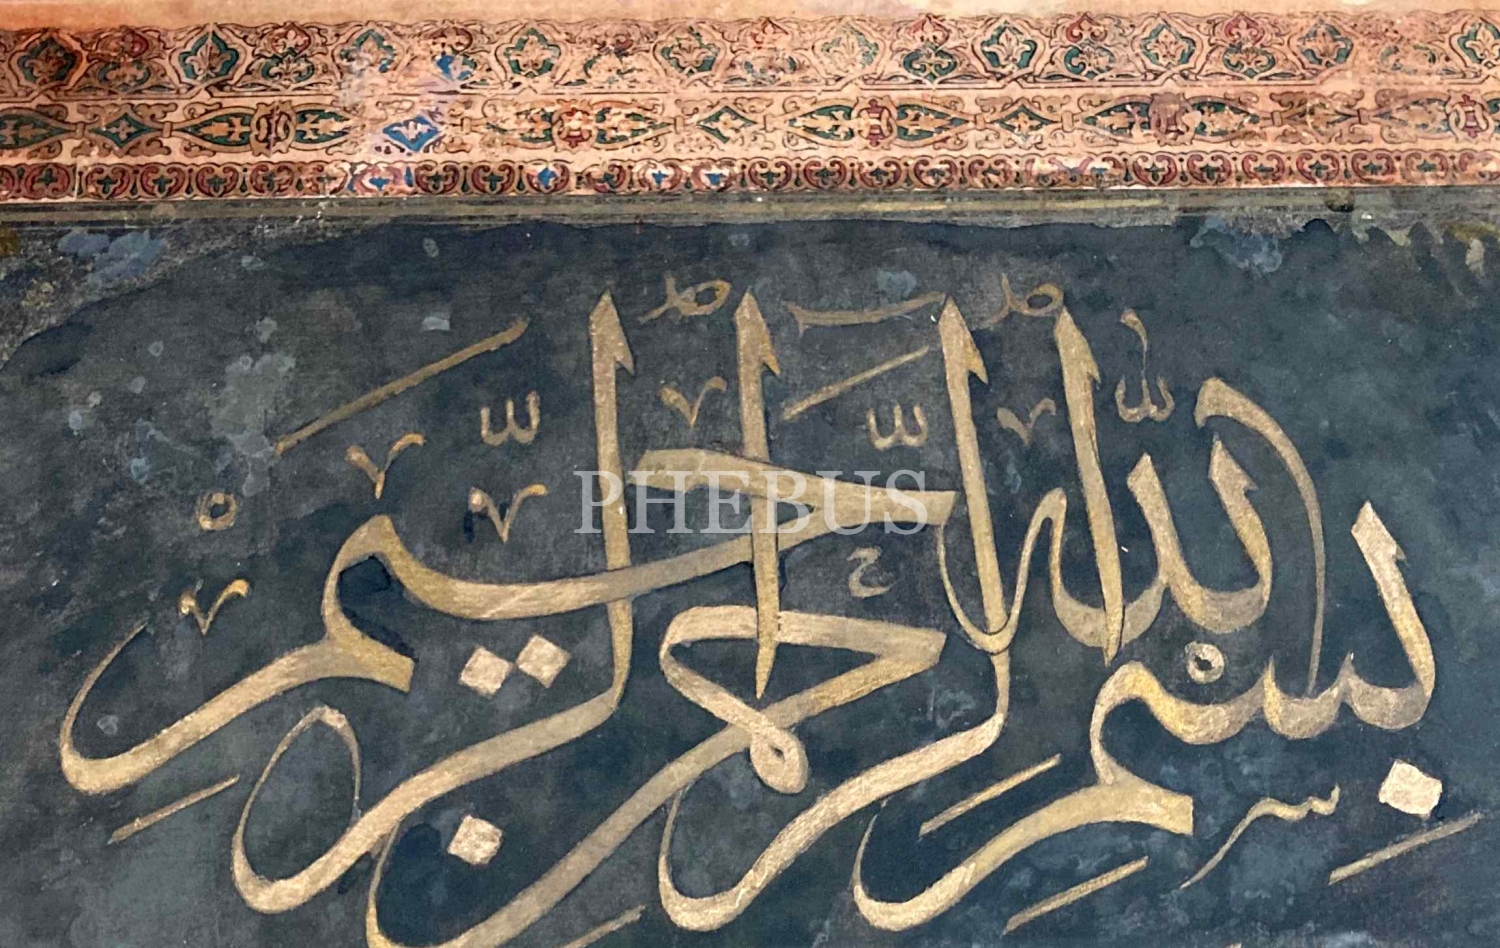 بِسْمِ اللّٰه الرَّحْمٰن الرَّحِيمِ
PHEBUS